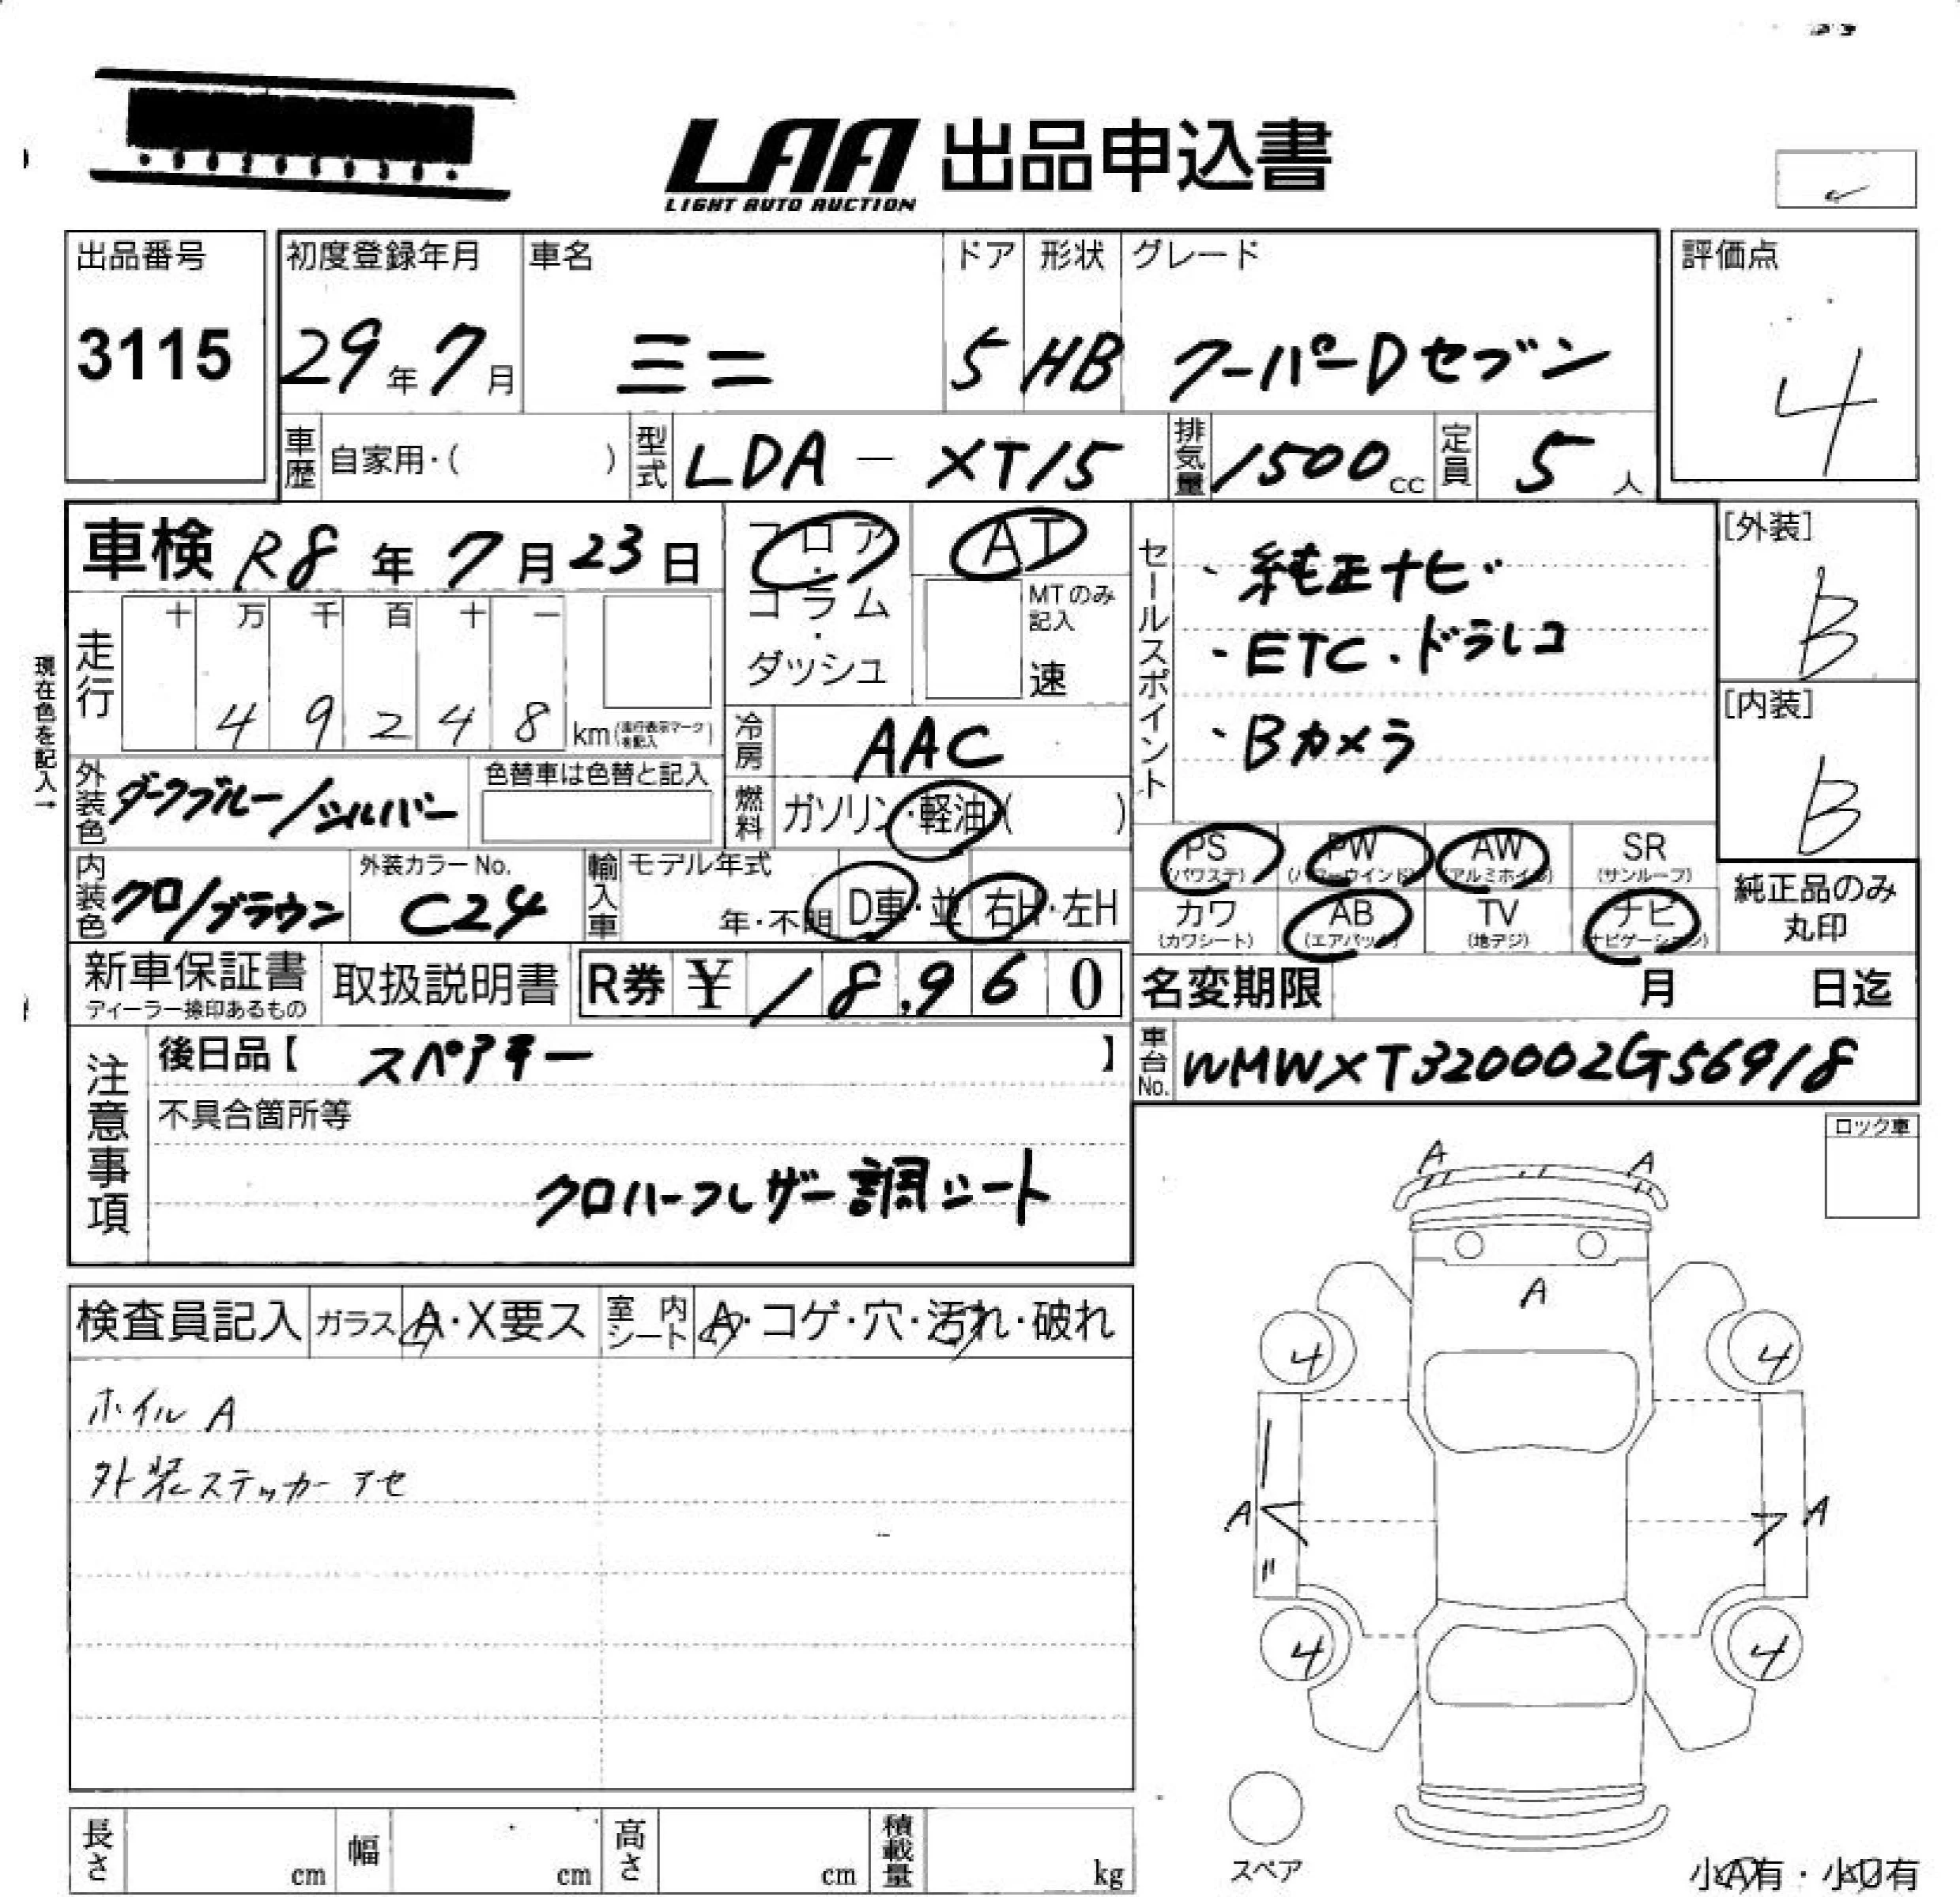 LAA 出品申込書
LIGHT AUTO AUCTION
出品番号
3115
初度登録年月
29年7月
車名
ミニ
ドア
5
形状
HB
グレード
クーパーDセブン
評価点
4
車歴 自家用・( )
型式 LDA - XT15
排気量 1500cc
定員 5人
車検 R8年7月23日
フロア・コラム・ダッシュ
AT
MTのみ記入
速
セールスポイント
・純正ナビ
・ETC・ドラレコ
・Bカメラ
[外装]
B
[内装]
B
現在色を記入→
走行
十 万 千 百 十 一
4 9 2 4 8 km(走行表示マークを記入)
冷房 AAC
外装色 ダークブルー/シルバー
色替車は色替と記入
燃料 ガソリン・軽油・( )
内装色 クロ/ブラウン
外装カラーNo.
C24
輸入車 モデル年式
年・不明
D車・並
右H・左H
PS (パワステ)
PW (パワーウインド)
AW (アルミホイル)
SR (サンルーフ)
カワ (カワシート)
AB (エアバッグ)
TV (地デジ)
ナビ (ナビゲーション)
純正品のみ丸印
新車保証書
ディーラー捺印あるもの
取扱説明書
R券 ¥ 18,960
名変期限 月 日迄
注意事項
後日品【 スペアキー 】
車台No. WMWXT320002G56918
不具合箇所等
クロハーフレザー調シート
ロック車
検査員記入
ガラス A・X要ス
室内シート A・コゲ・穴・汚れ・破れ
ホイル A
外装ステッカー アセ
A A
A
4 4
A A
4 4
スペア
長さ cm
幅 cm
高さ cm
積載量 kg
小A有・小U有